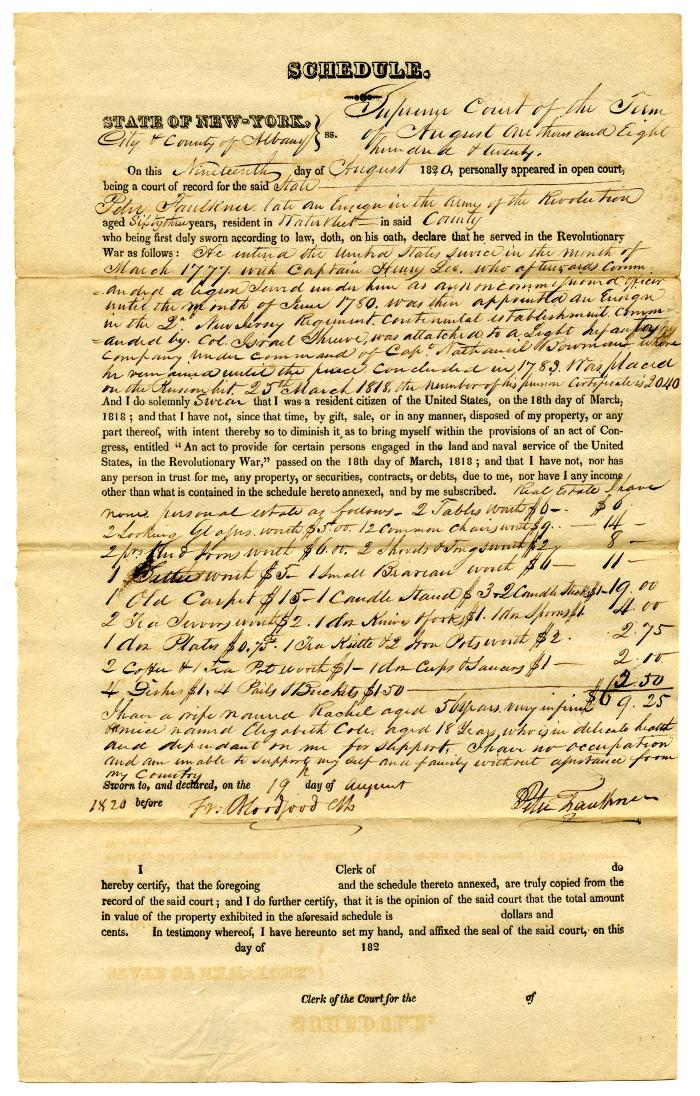 SCHEDULE.
STATE OF NEW-YORK. } ss. Supreme Court of the Term
City & County of Albany of August One thousand Eight
hundred & twenty.
On this Nineteenth day of August 1820, personally appeared in open court,
being a court of record for the said State
Peter Faulkner late an Ensign in the army of the Revolution
aged Sixty three years, resident in Watervliet in said County
who being first duly sworn according to law, doth, on his oath, declare that he served in the Revolutionary
War as follows: He entered the United States Service in the month of
March 1777. with Captain Henry Lee. who afterwards Comm-
=anded a legion Served under him as a non commissioned officer
until the month of June 1780. was then appointed an Ensign
in the 2d New Jersey Regiment. Continental establishment. Comm-
=anded by. Col. Israel Shreve, was attatched to a Light Infantry
Company under command of Capt. Nathaniel Bowman where
he remained until the peace Concluded in 1783. Was placed
on the Pension list. 25th March 1818. the number of his pension Certificate is 2040
And I do solemnly Swear that I was a resident citizen of the United States, on the 18th day of March,
1818; and that I have not, since that time, by gift, sale, or in any manner, disposed of my property, or any
part thereof, with intent thereby so to diminish it as to bring myself within the provisions of an act of Con-
gress, entitled "An act to provide for certain persons engaged in the land and naval service of the United
States, in the Revolutionary War," passed on the 18th day of March, 1818; and that I have not, nor has
any person in trust for me, any property, or securities, contracts, or debts, due to me, nor have I any income
other than what is contained in the schedule hereto annexed, and by me subscribed. Real Estate I have
none personal estate as follows - 2 Tables worth $6 - - $6
2 Looking Glasses. worth $5.00. 12 Common Chairs worth 9. - 14 -
2 prs And Irons worth $6.00. 2 Shovels & Tongs worth $2 8 -
1 worth $5 - 1 Small Bureau worth $6 - 11 -
1 Old Carpet $15 - 1 Candle Stand $3 - 2 Candle Sticks $1 - 19.00
2 Tea Servors worth $2. 1 doz Knives & forks $1. 1 doz Spoons $1 4.00
1 doz Plates $0.75. 1 Tea Kittle & 2 Iron Pots worth $2. 2.75
2 Coffee & 1 Tea Pot worth $1 - 1 doz Cups & Saucers $1 - 2.00
4 Dishes $1. 4 Pails & Buckets $1.50 2.50
$69.25
I have a wife named Rachel aged 56 years. very infirm
& niece named Elizabeth Cole. aged 18 Years, who is in delicate health
and dependant on me for support. I have no occupation
and am unable to support my self and a family without assistance from
my Country
Sworn to, and declared, on the 19th day of August
1820 before Fr. Bloodgood Clk Peter Faulkner
I Clerk of do
hereby certify, that the foregoing and the schedule thereto annexed, are truly copied from the
record of the said court; and I do further certify, that it is the opinion of the said court that the total amount
in value of the property exhibited in the aforesaid schedule is dollars and
cents. In testimony whereof, I have hereunto set my hand, and affixed the seal of the said court, on this
day of 182
Clerk of the Court for the of